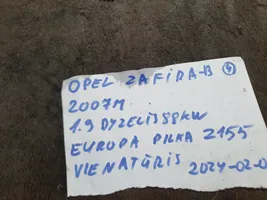 OPEL ZAFIRA-B 4
2007M
1.9 DYZELIS 88KW
EUROPA PILKA Z155
VIENATŪRIS 2024-02-0